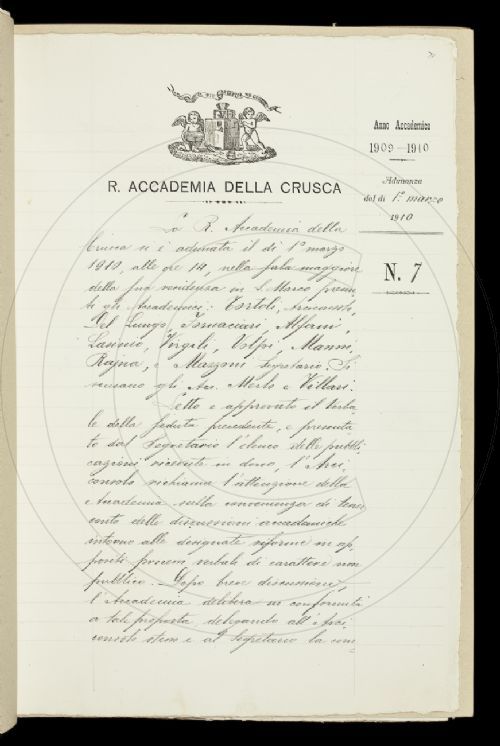 R. ACCADEMIA DELLA CRUSCA
Anno Accademico
1909-1910
Adunanza
del dì 1º marzo
1910
N. 7
La R. Accademia della
Crusca si è adunata il dì 1º marzo
1910, alle ore 14, nella sala maggiore
della sua residenza in S. Marco presen-
ti gli Accademici: Tortoli, Arciconsolo,
Del Lungo, Fornaciari, Alfani,
Sanini, Virgili, Volpi, Manni,
Rajna, e Mazzoni Segretario. Si
scusano gli Acc. Merlo e Villari.
Letto e approvato il verba-
le della seduta precedente, e presenta-
to dal Segretario l'elenco delle pubbli-
cazioni ricevute in dono, l'Arci-
consolo richiama l'attenzione della
Accademia sulla convenienza di tener
conto delle discussioni accademiche
intorno alle designate riforme in ap-
positi processi verbali di carattere non
pubblico. Dopo breve discussione,
l'Accademia delibera in conformità
a tale proposta, delegando all'Arci-
consolo stesso e al Segretario la com-